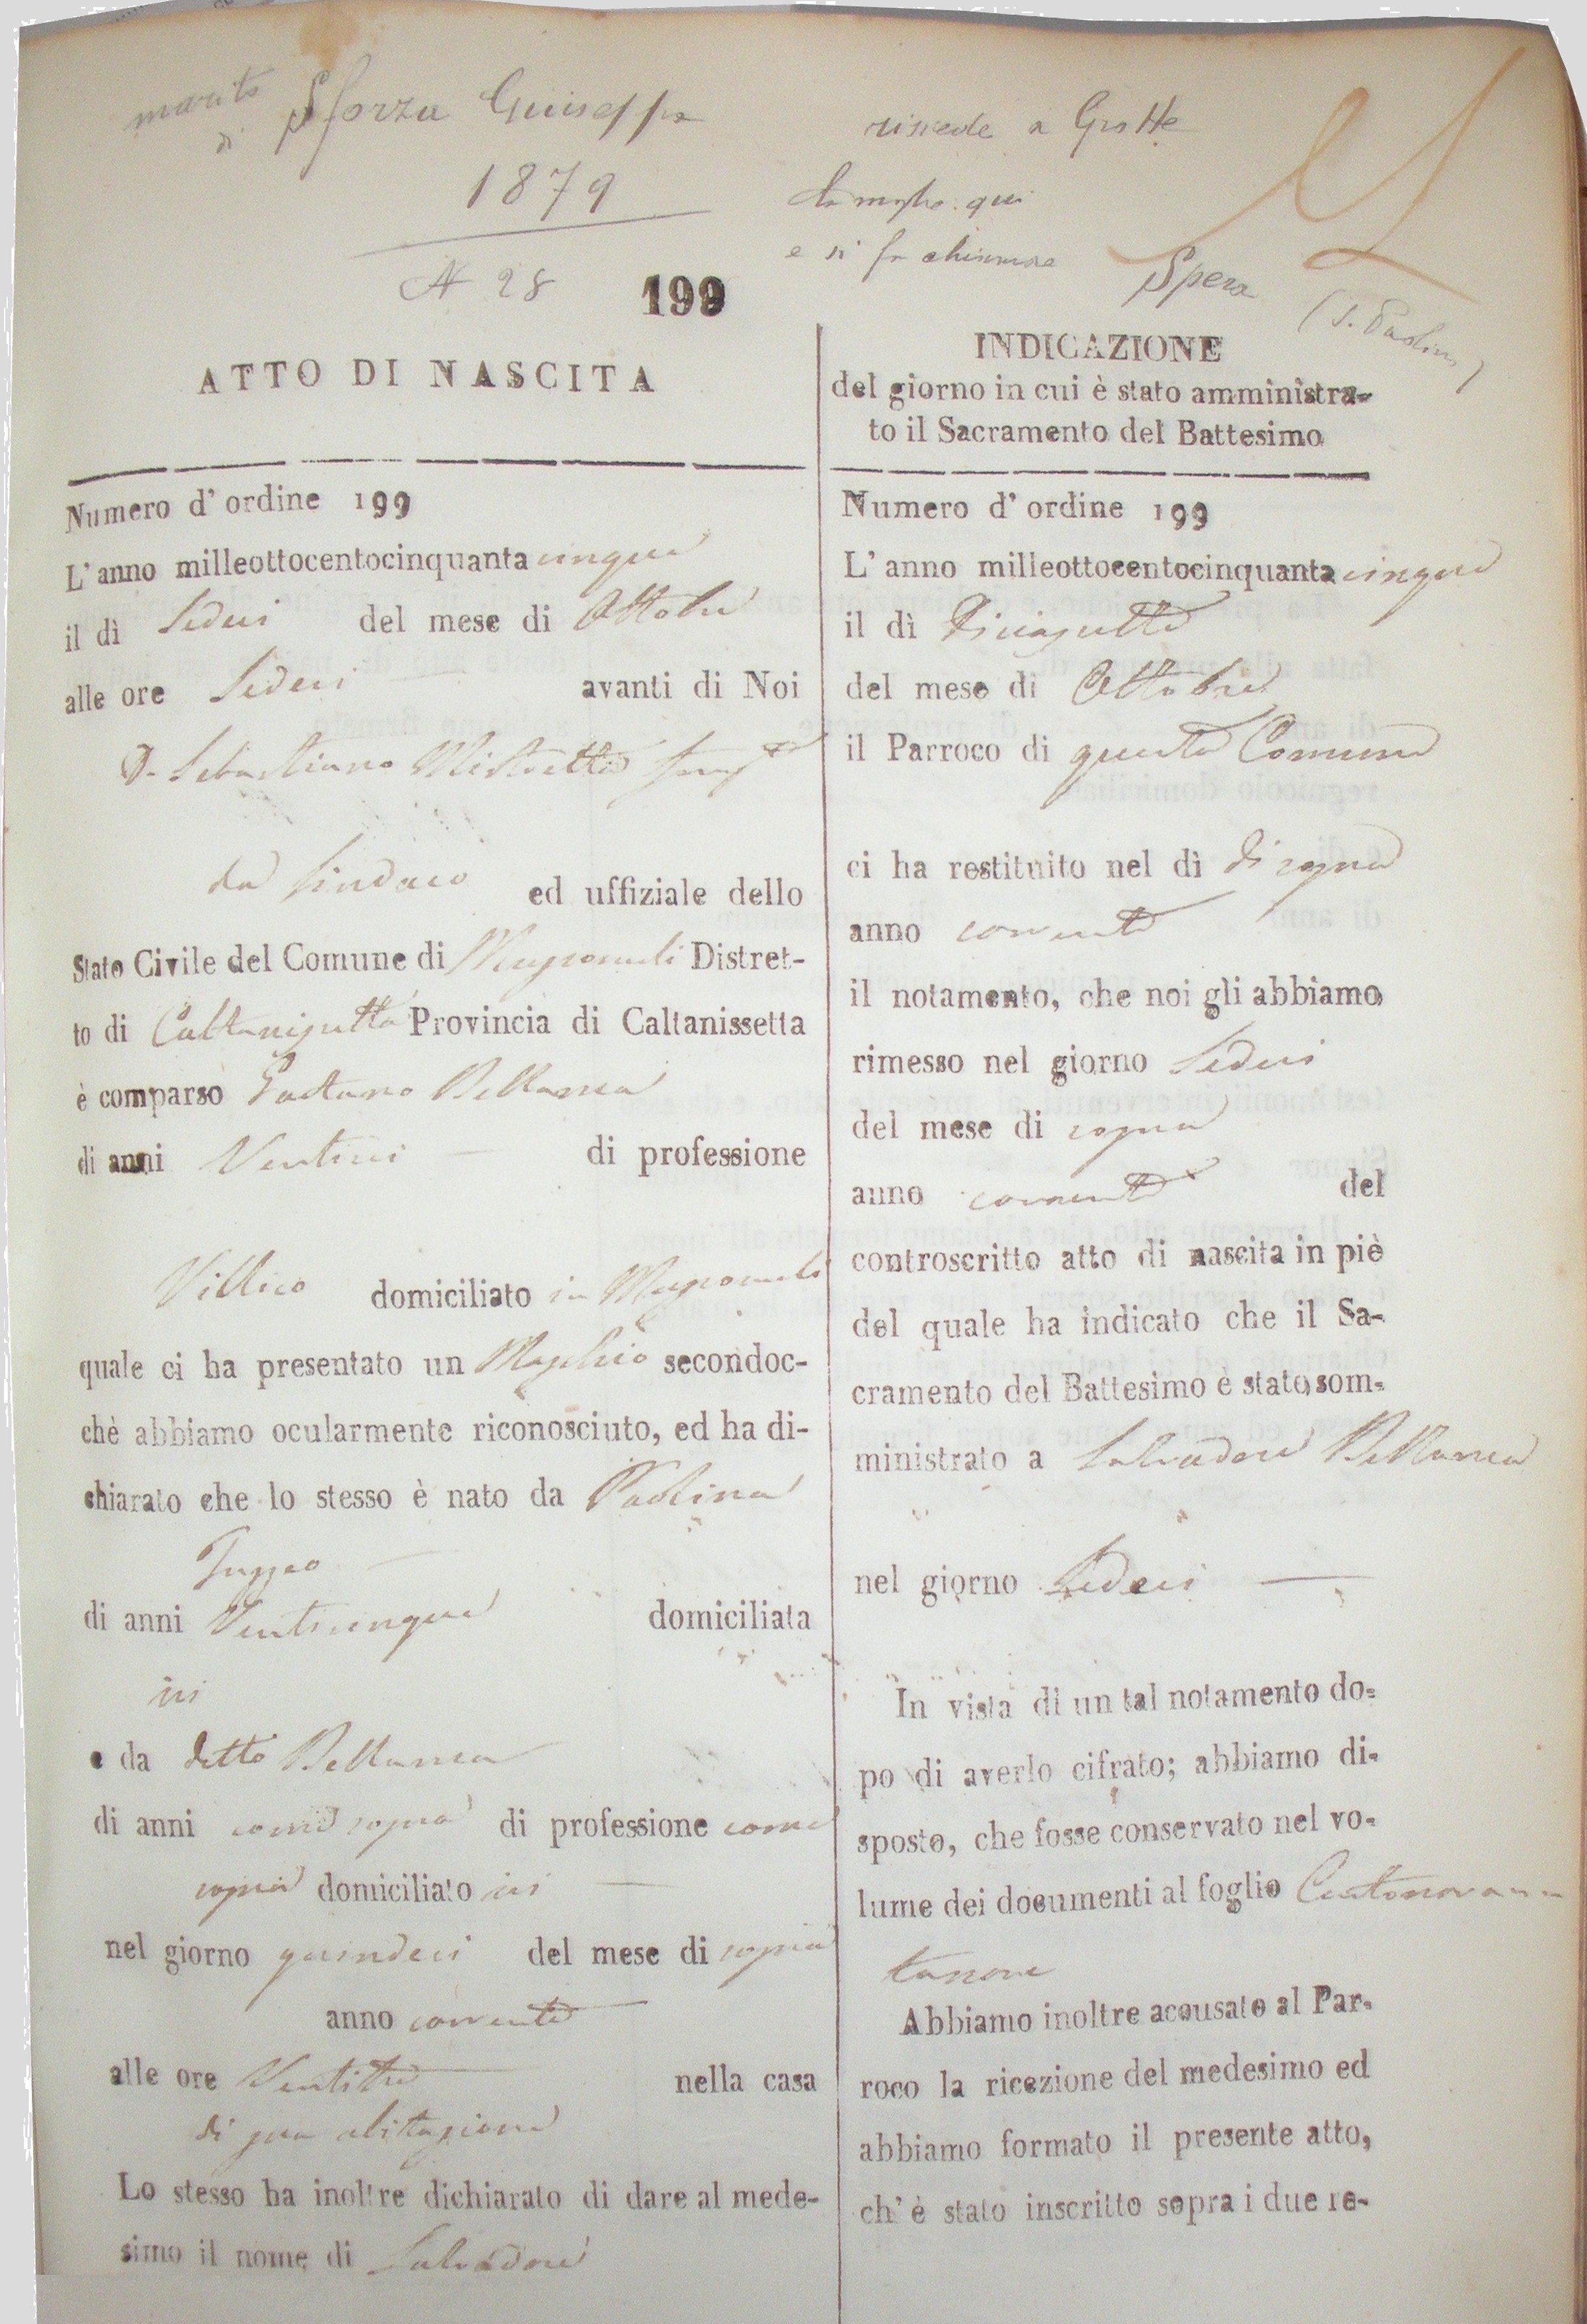 marito
di Sforza Giuseppa
1879
N 28
risiede a Grotte
la moglie qui
e si fa chiamare
Spera
(S. Paolino)
199
ATTO DI NASCITA
Numero d' ordine 199
L' anno milleottocentocinquanta cinque
il dì Sedici del mese di Ottobre
alle ore Sedici avanti di Noi
D. Sebastiano Mistretta
da Sindaco ed uffiziale dello
Stato Civile del Comune di Mussomeli Distret-
to di Caltanissetta Provincia di Caltanissetta
è comparso Gaetano Bellanca
di anni di professione
Villico domiciliato in Mussomeli
quale ci ha presentato un Maschio secondoc-
chè abbiamo ocularmente riconosciuto, ed ha di-
chiarato che lo stesso è nato da Paolina
di anni Venticinque domiciliata
ivi
e da detto Bellanca
di anni come sopra di professione come
sopra domiciliato ivi
nel giorno quindeci del mese di sopra
anno corrente
alle ore Ventitre nella casa
di sua abitazione
Lo stesso ha inoltre dichiarato di dare al mede-
simo il nome di Salvadore
INDICAZIONE
del giorno in cui è stato amministra-
to il Sacramento del Battesimo
Numero d' ordine 199
L' anno milleottocentocinquanta cinque
il dì Diciasette
del mese di Ottobre
il Parroco di questa Comune
ci ha restituito nel dì di sopra
anno corrente
il notamento, che noi gli abbiamo
rimesso nel giorno Sedici
del mese di sopra
anno corrente del
controscritto atto di nascita in piè
del quale ha indicato che il Sa-
cramento del Battesimo è stato som-
ministrato a Salvadore Bellanca
nel giorno Sedeci
In vista di un tal notamento do-
po di averlo cifrato; abbiamo di-
sposto, che fosse conservato nel vo-
lume dei documenti al foglio Centonovan
tanove
Abbiamo inoltre acousato al Par-
roco la ricezione del medesimo ed
abbiamo formato il presente atto,
ch' è stato inscritto sopra i due re-